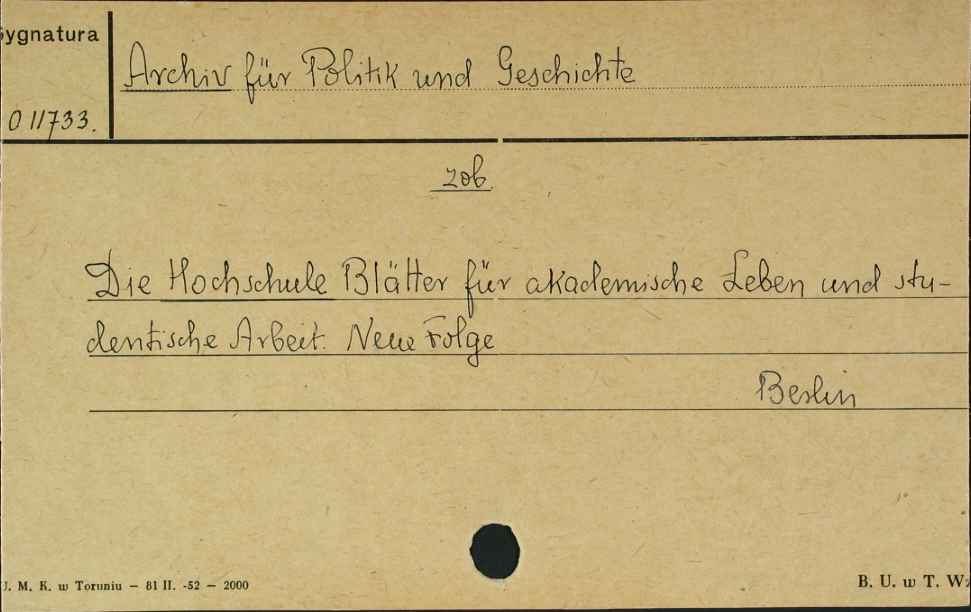 Sygnatura
Archiv für Politik und Geschichte
011733.
zob.
Die Hochschule Blätter für akademische Leben und stu-
dentische Arbeit. Neue Folge
Berlin
U. M. K. w Toruniu — 81 II. -52 — 2000
B. U. w T. W